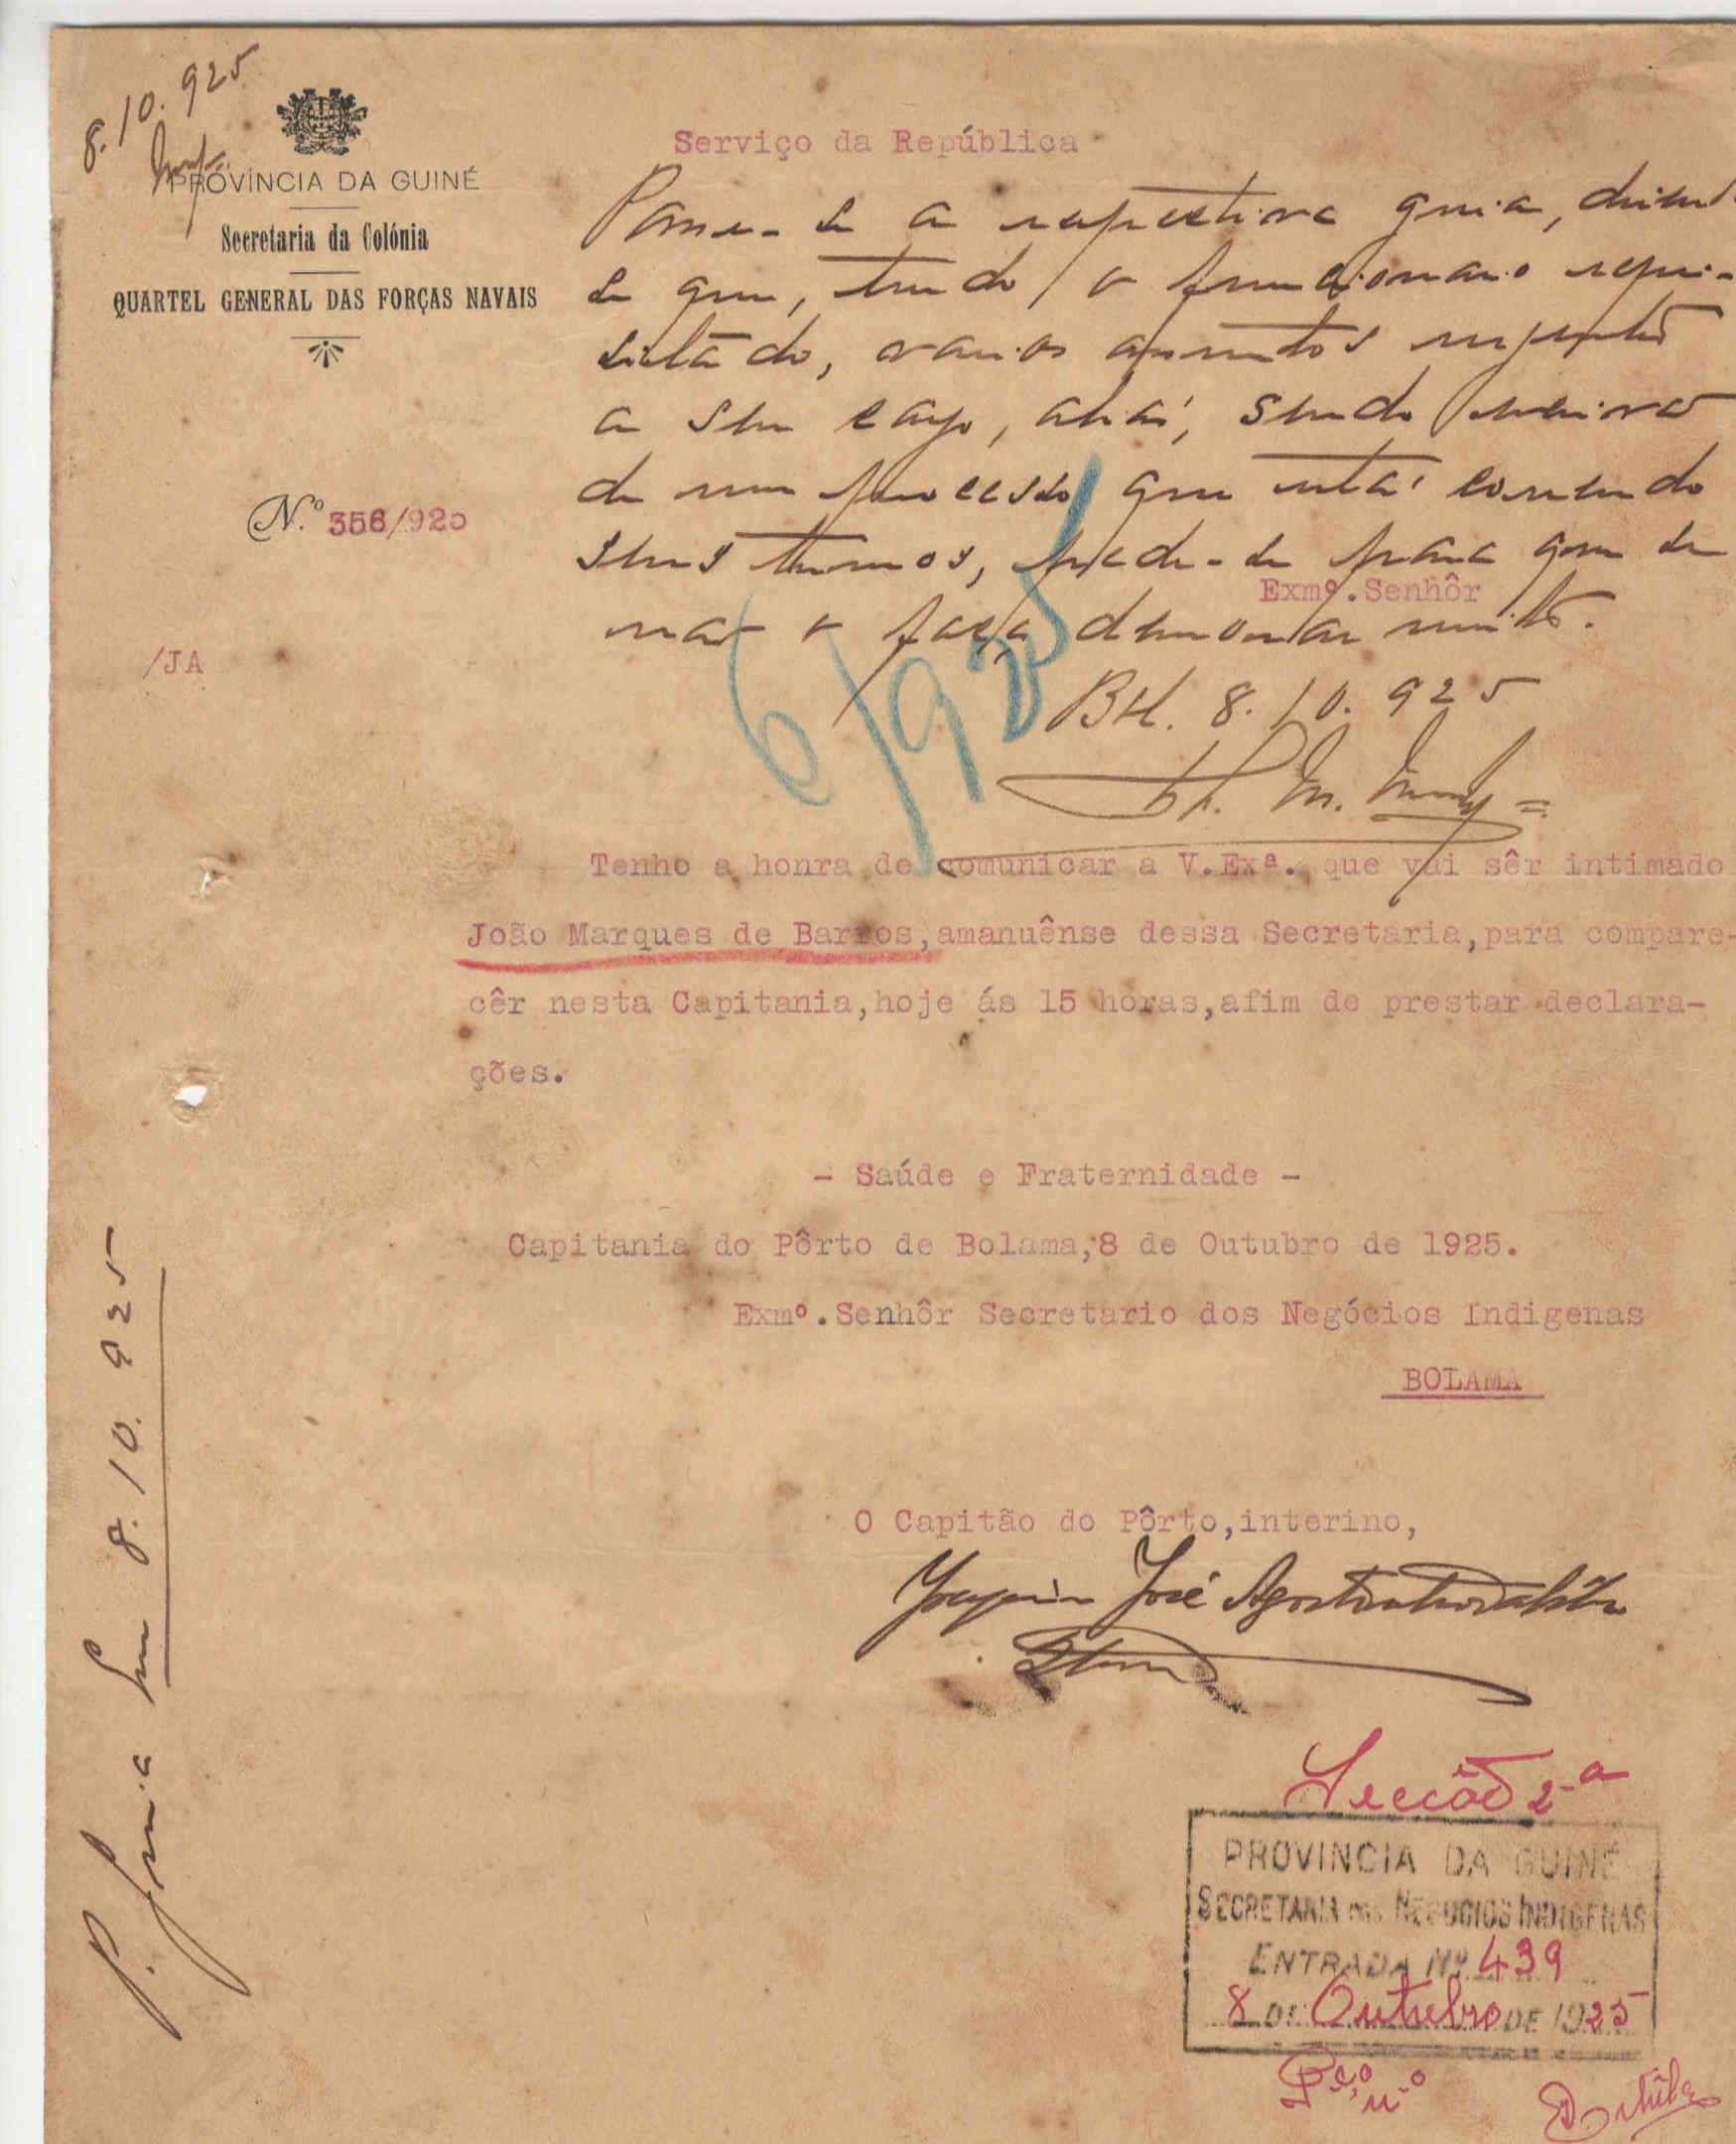 8.10.925
PROVÍNCIA DA GUINÉ
Secretaria da Colónia
QUARTEL GENERAL DAS FORÇAS NAVAIS
N.º 356/925
/JA
Serviço da República
Passe-se a respectiva guia,
se que, tendo o funcionario requi-
sitado, varios assuntos urgentes
a seu cargo, aliás, sendo
de um processo que está correndo
seus termos, pede-se para que se
não o faça demorar muito.
Exmº.Senhôr
8.10.925
6/925
Tenho a honra de comunicar a V.Exª. que vai sêr intimado
João Marques de Barros,amanuênse dessa Secretaria,para compare-
cêr nesta Capitania,hoje ás 15 horas,afim de prestar declara-
ções.
- Saúde e Fraternidade -
Capitania do Pôrto de Bolama,8 de Outubro de 1925.
Exmº.Senhôr Secretario dos Negócios Indigenas
BOLAMA
O Capitão do Pôrto,interino,
Joaquim José
P. guia em 8.10.925
Secção 2ª
PROVINCIA DA GUINÉ
SECRETARIA DOS NEGOCIOS INDIGENAS
ENTRADA Nº 439
8 DE Outubro DE 1925
P.ço n.º